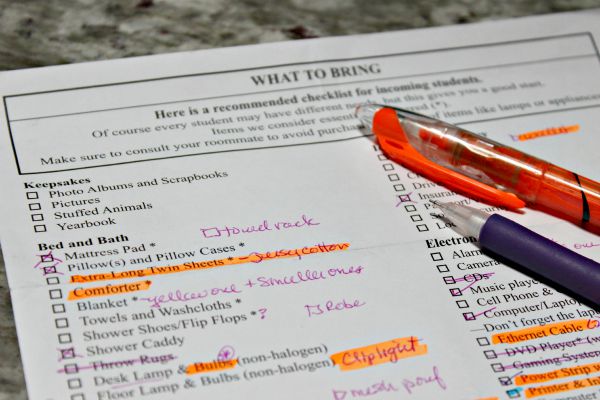 WHAT TO BRING
Here is a recommended checklist for incoming students.
Of course every student may have different but this gives you a good start.
Items we consider (*).
Make sure to consult your roommate to avoid of items like lamps or appliances
Keepsakes
Photo Albums and Scrapbooks
Pictures
Stuffed Animals
Yearbook
Bed and Bath
towel rack
Mattress Pad *
Pillow(s) and Pillow Cases *
Extra-Long Twin Sheets * - jersey cotton
Comforter *
Blanket * - yellow one + smaller ones
Towels and Washcloths *
Shower Shoes/Flip Flops * ?
Robe
Shower Caddy
Throw Rugs
Desk Lamp & Bulbs (non-halogen)
Cliplight
Floor Lamp & Bulbs (non-halogen)
mesh pouf
Electron
Alarm
Camera
CDs
Music player
Cell Phone &
Computer/Laptop
Don't forget the lap
Ethernet Cable
DVD Player*
Gaming System
Power Strip
Printer & Ink